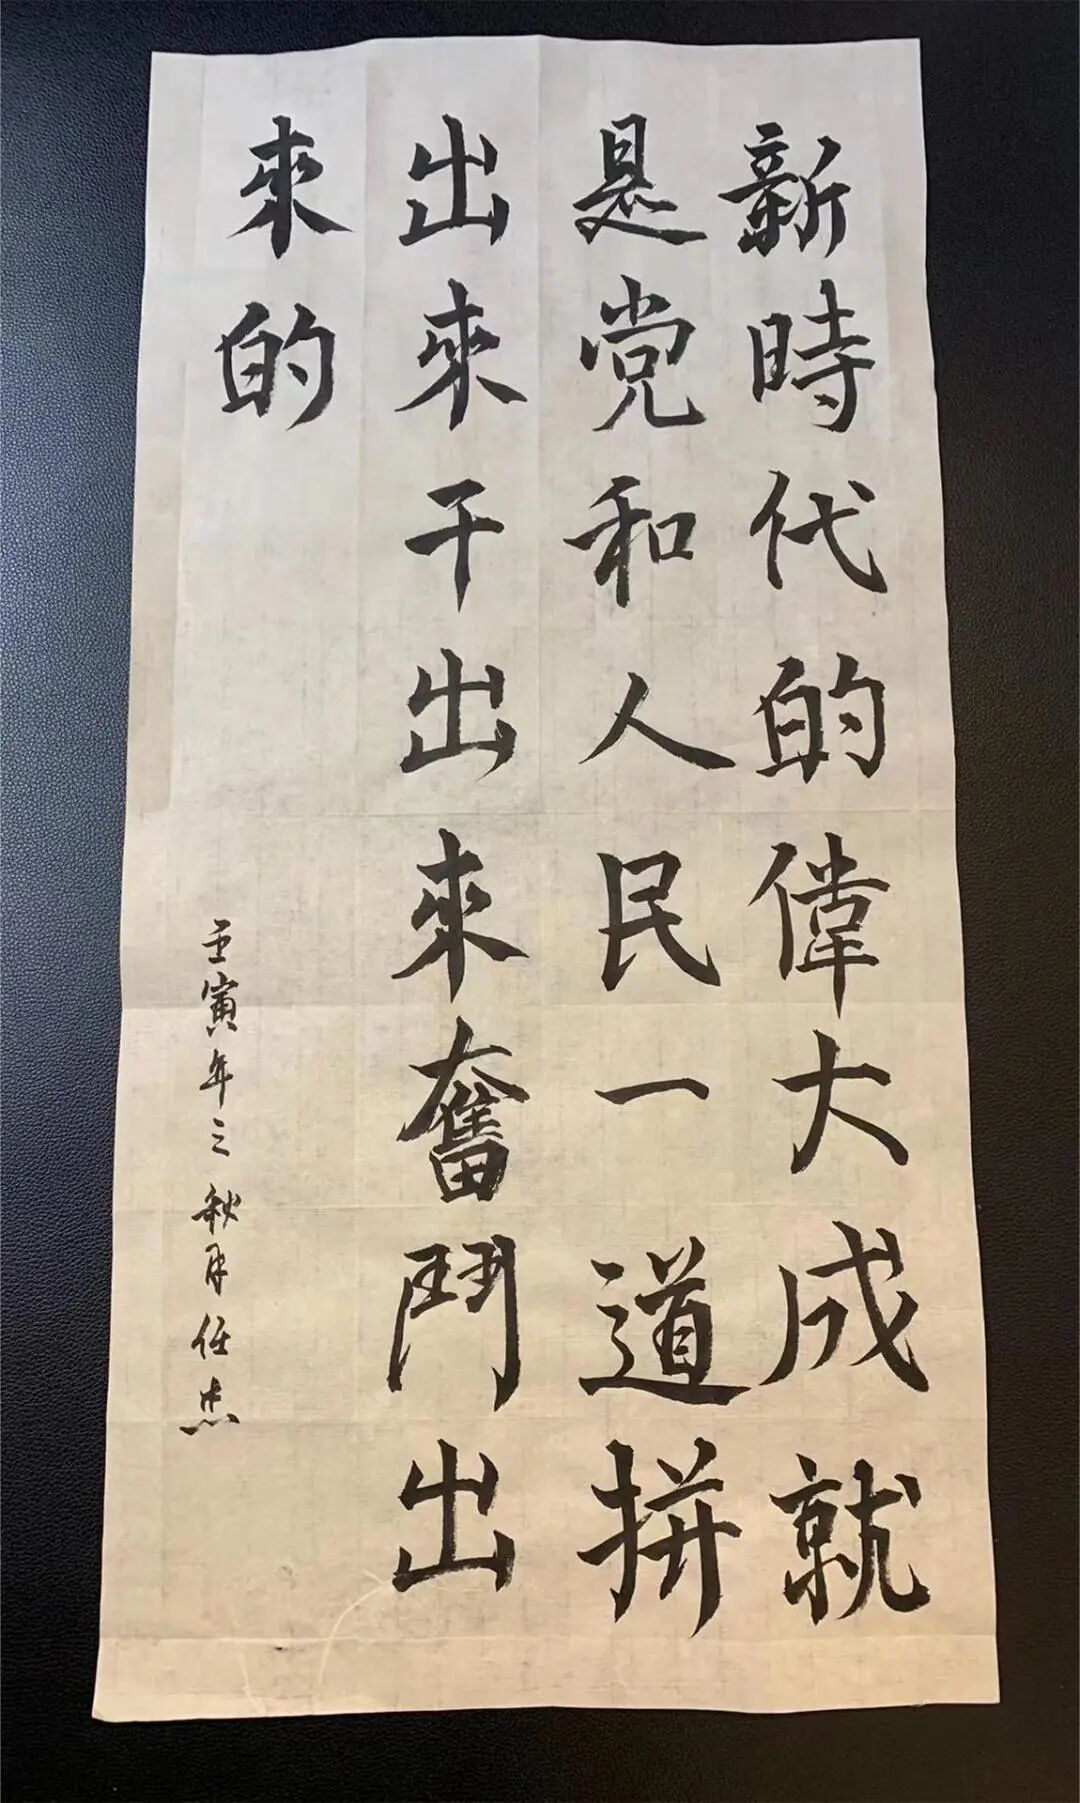 新時代的偉大成就
是党和人民一道拼
出來干出來奮鬥出
來的
壬寅年三秋月任忠